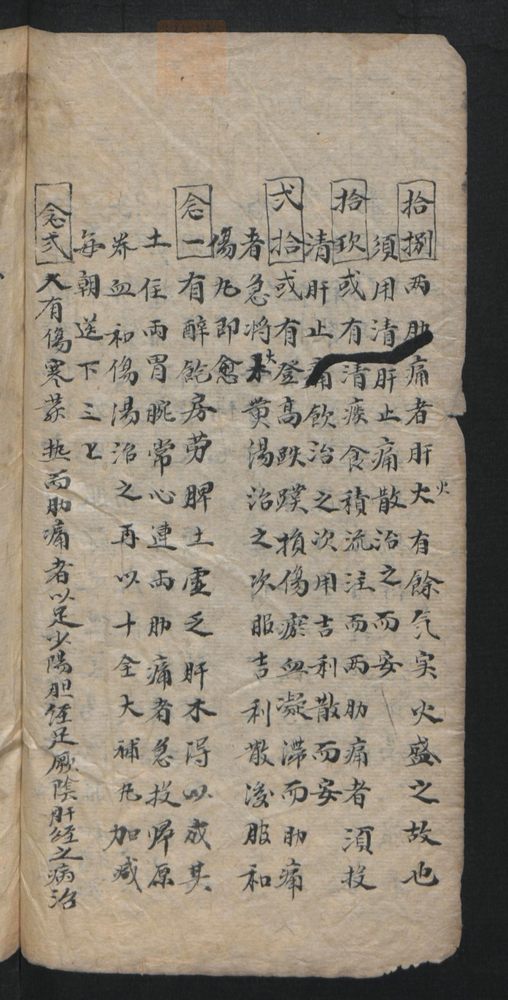 拾捌 两肋痛者肝大火有餘气実火盛之故也
須用清肝止痛散治之而安
拾玖 或有清痰食積流注而两肋痛者須投
清肝止痛飲治之次用吉利散而安
弍拾 或有登高跌蹼損傷瘀血凝滞而肋痛
者急将大黄湯治之次服吉利散後服和
傷丸即愈
念一 有醉飽房劳脾土虚乏肝木得以成其
土住两胃脘常心連两肋痛者急投歸原
养血和傷湯治之再以十全大補丸加减
每朝送下三七
念弍 大有傷寒蒸热而肋痛者以足少陽胆経足厥陰肝経之病治